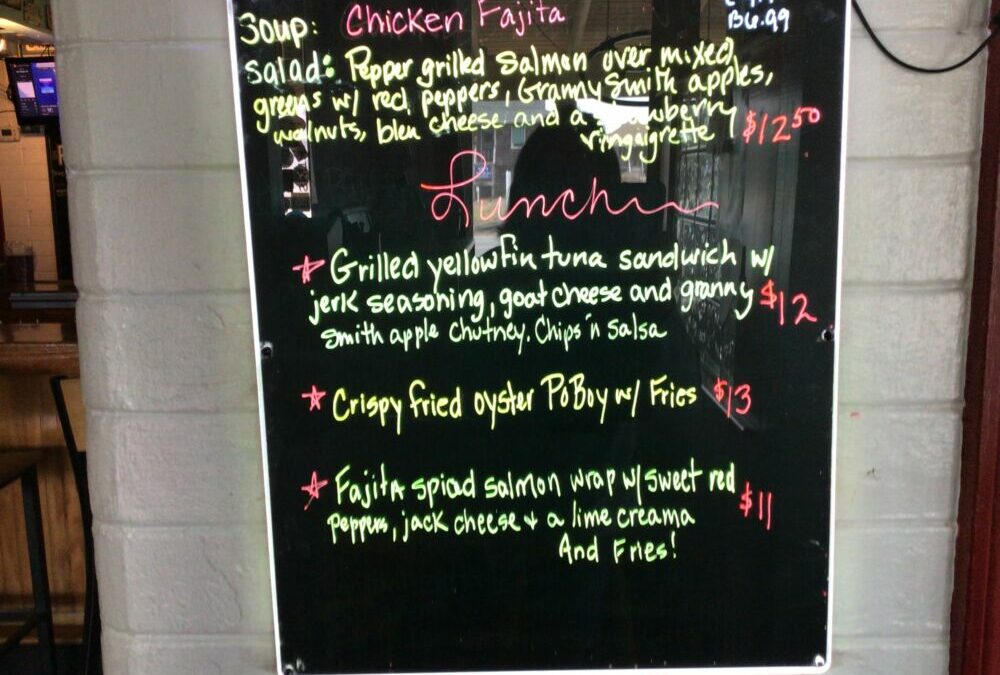 Soup: Chicken Fajita
B6.99
Salad: Pepper grilled Salmon over mixed
greens w/ red peppers, Granny Smith apples,
walnuts, bleu cheese and a strawberry
vingaigrette $12.50
Lunch
Grilled yellowfin tuna sandwich w/
jerk seasoning, goat cheese and granny $12
Smith apple chutney. Chips 'n Salsa
Crispy fried oyster PoBoy w/ Fries $13
Fajita spiad salmon wrap w/ sweet red
peppers, jack cheese + a lime creama $11
And Fries!